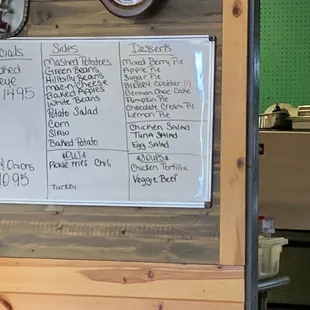 Specials
1495
& Onions
1095
Sides
Mashed Potatoes
Green Beans
Hillbilly Beans
Mac-n-cheese
Baked Apples
White Beans
Potato Salad
Corn
Slaw
Baked Potato
Chili
Turkey
Desserts
Mixed Berry Pie
Apple Pie
Sugar Pie
Cobbler
German Choc Cake
Pumpkin Pie
Chocolate Cream Pie
Lemon Pie
Chicken Salad
Tuna Salad
Egg Salad
*Soups*
Chicken Tortilla
Veggie Beef